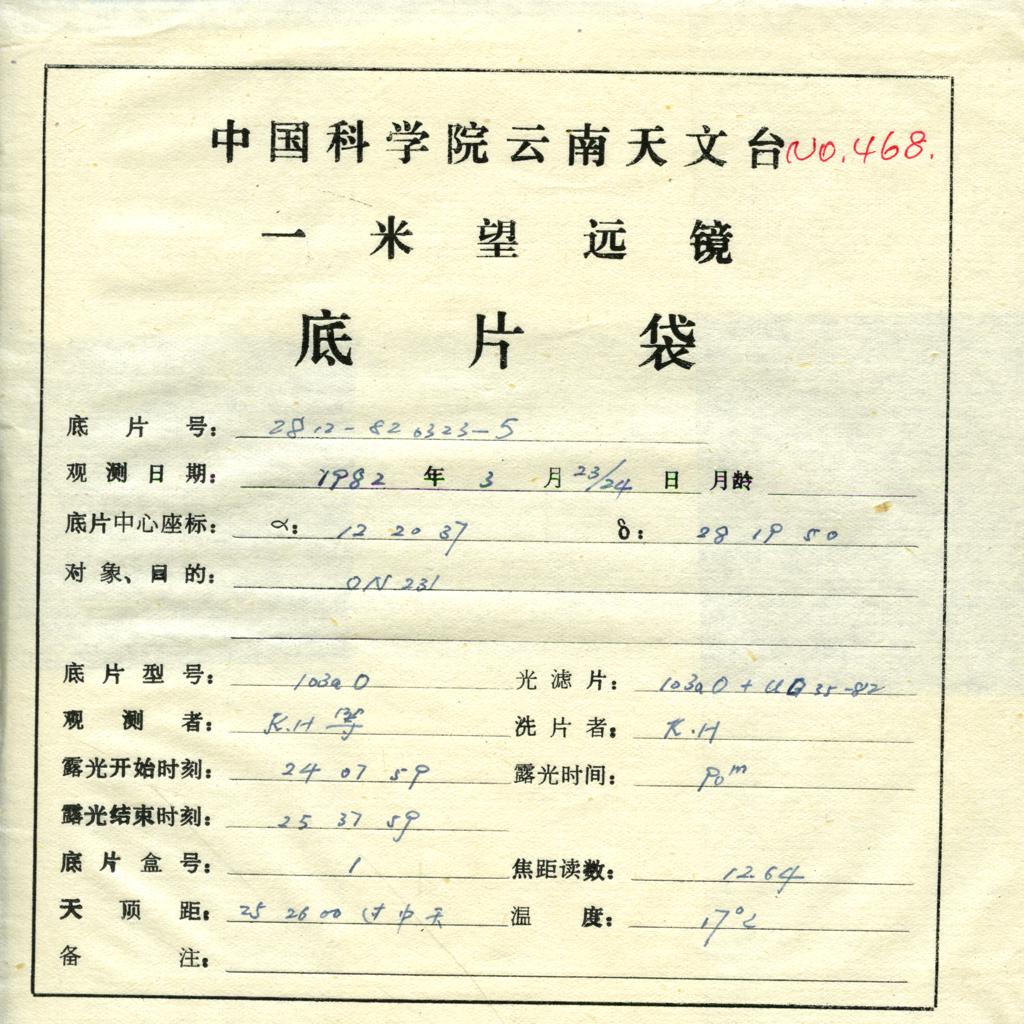 中国科学院云南天文台 No.468.
一米望远镜
底片袋
底片号： 2812-820323-5
观测日期： 1982 年 3 月 23/24 日 月龄
底片中心座标： α： 12 20 37 δ： 28 19 50
对象、目的： ON 231
底片型号： 103a O 光滤片： 103a O + UG 35-82
观测者： K.H 等 洗片者： K.H
露光开始时刻： 24 07 59 露光时间： 90m
露光结束时刻： 25 37 59
底片盒号： 1 焦距读数： 12.64
天顶距： 25 26 00 过中天 温度： 17°C
备注：